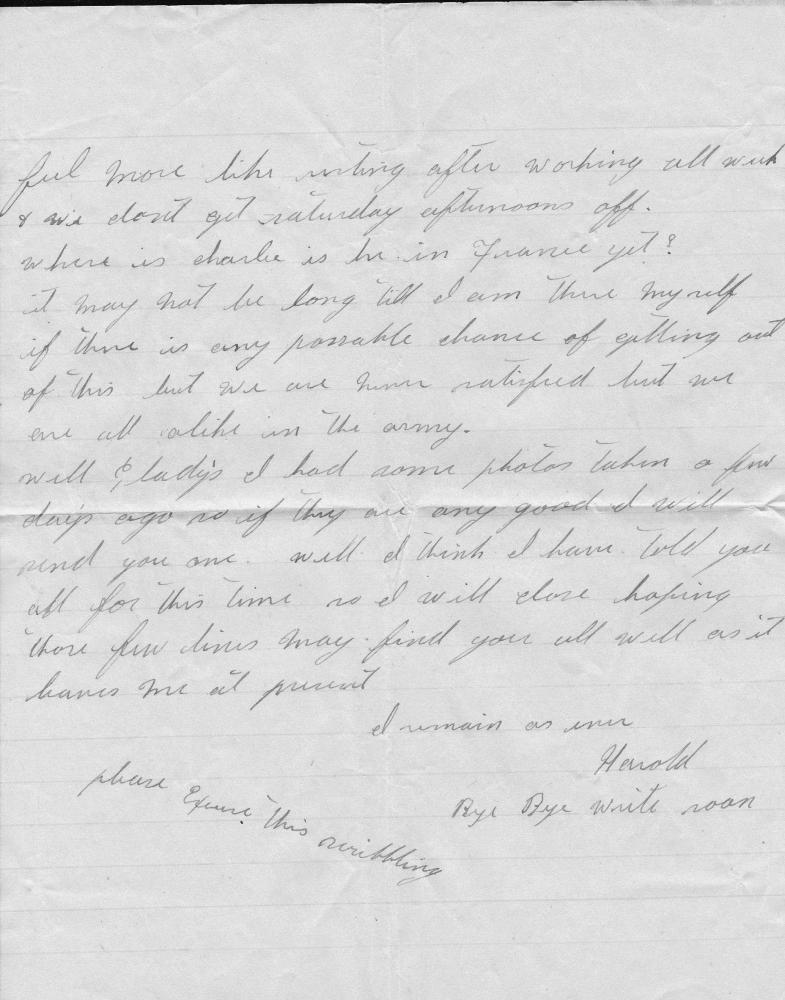 feel more like writing after working all week
& we dont get saturday afternoons off.
where is charlie is he in France yet?
it may not be long till I am there myself
if there is any possable chance of getting out
of this but we are never satisfied but we
are all alike in the army.
well Gladys I had some photos taken a few
days ago so if they are any good I will
send you one. well I think I have told you
all for this time so I will close hoping
those few lines may find you all well as it
leaves me at present
I remain as ever
Harold
Bye Bye write soon
please Excuse this scribbling